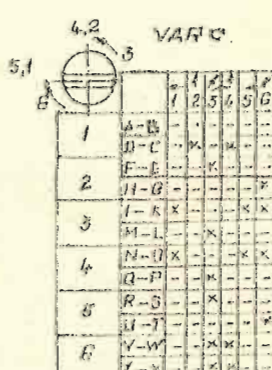 4,2 VAR C.
5,1 3
6
1 2 3 4 5 6
1 A-B - - - - - -
D-C - x - x - -
2 F-E - - x - - -
H-G - - - - - x
3 I-K x - - - x x
M-L - - x - - -
4 N-O x - - - x x
Q-P - - x - - -
5 R-S - - x - - -
U-T - - - - -
6 V-W - - x x - -